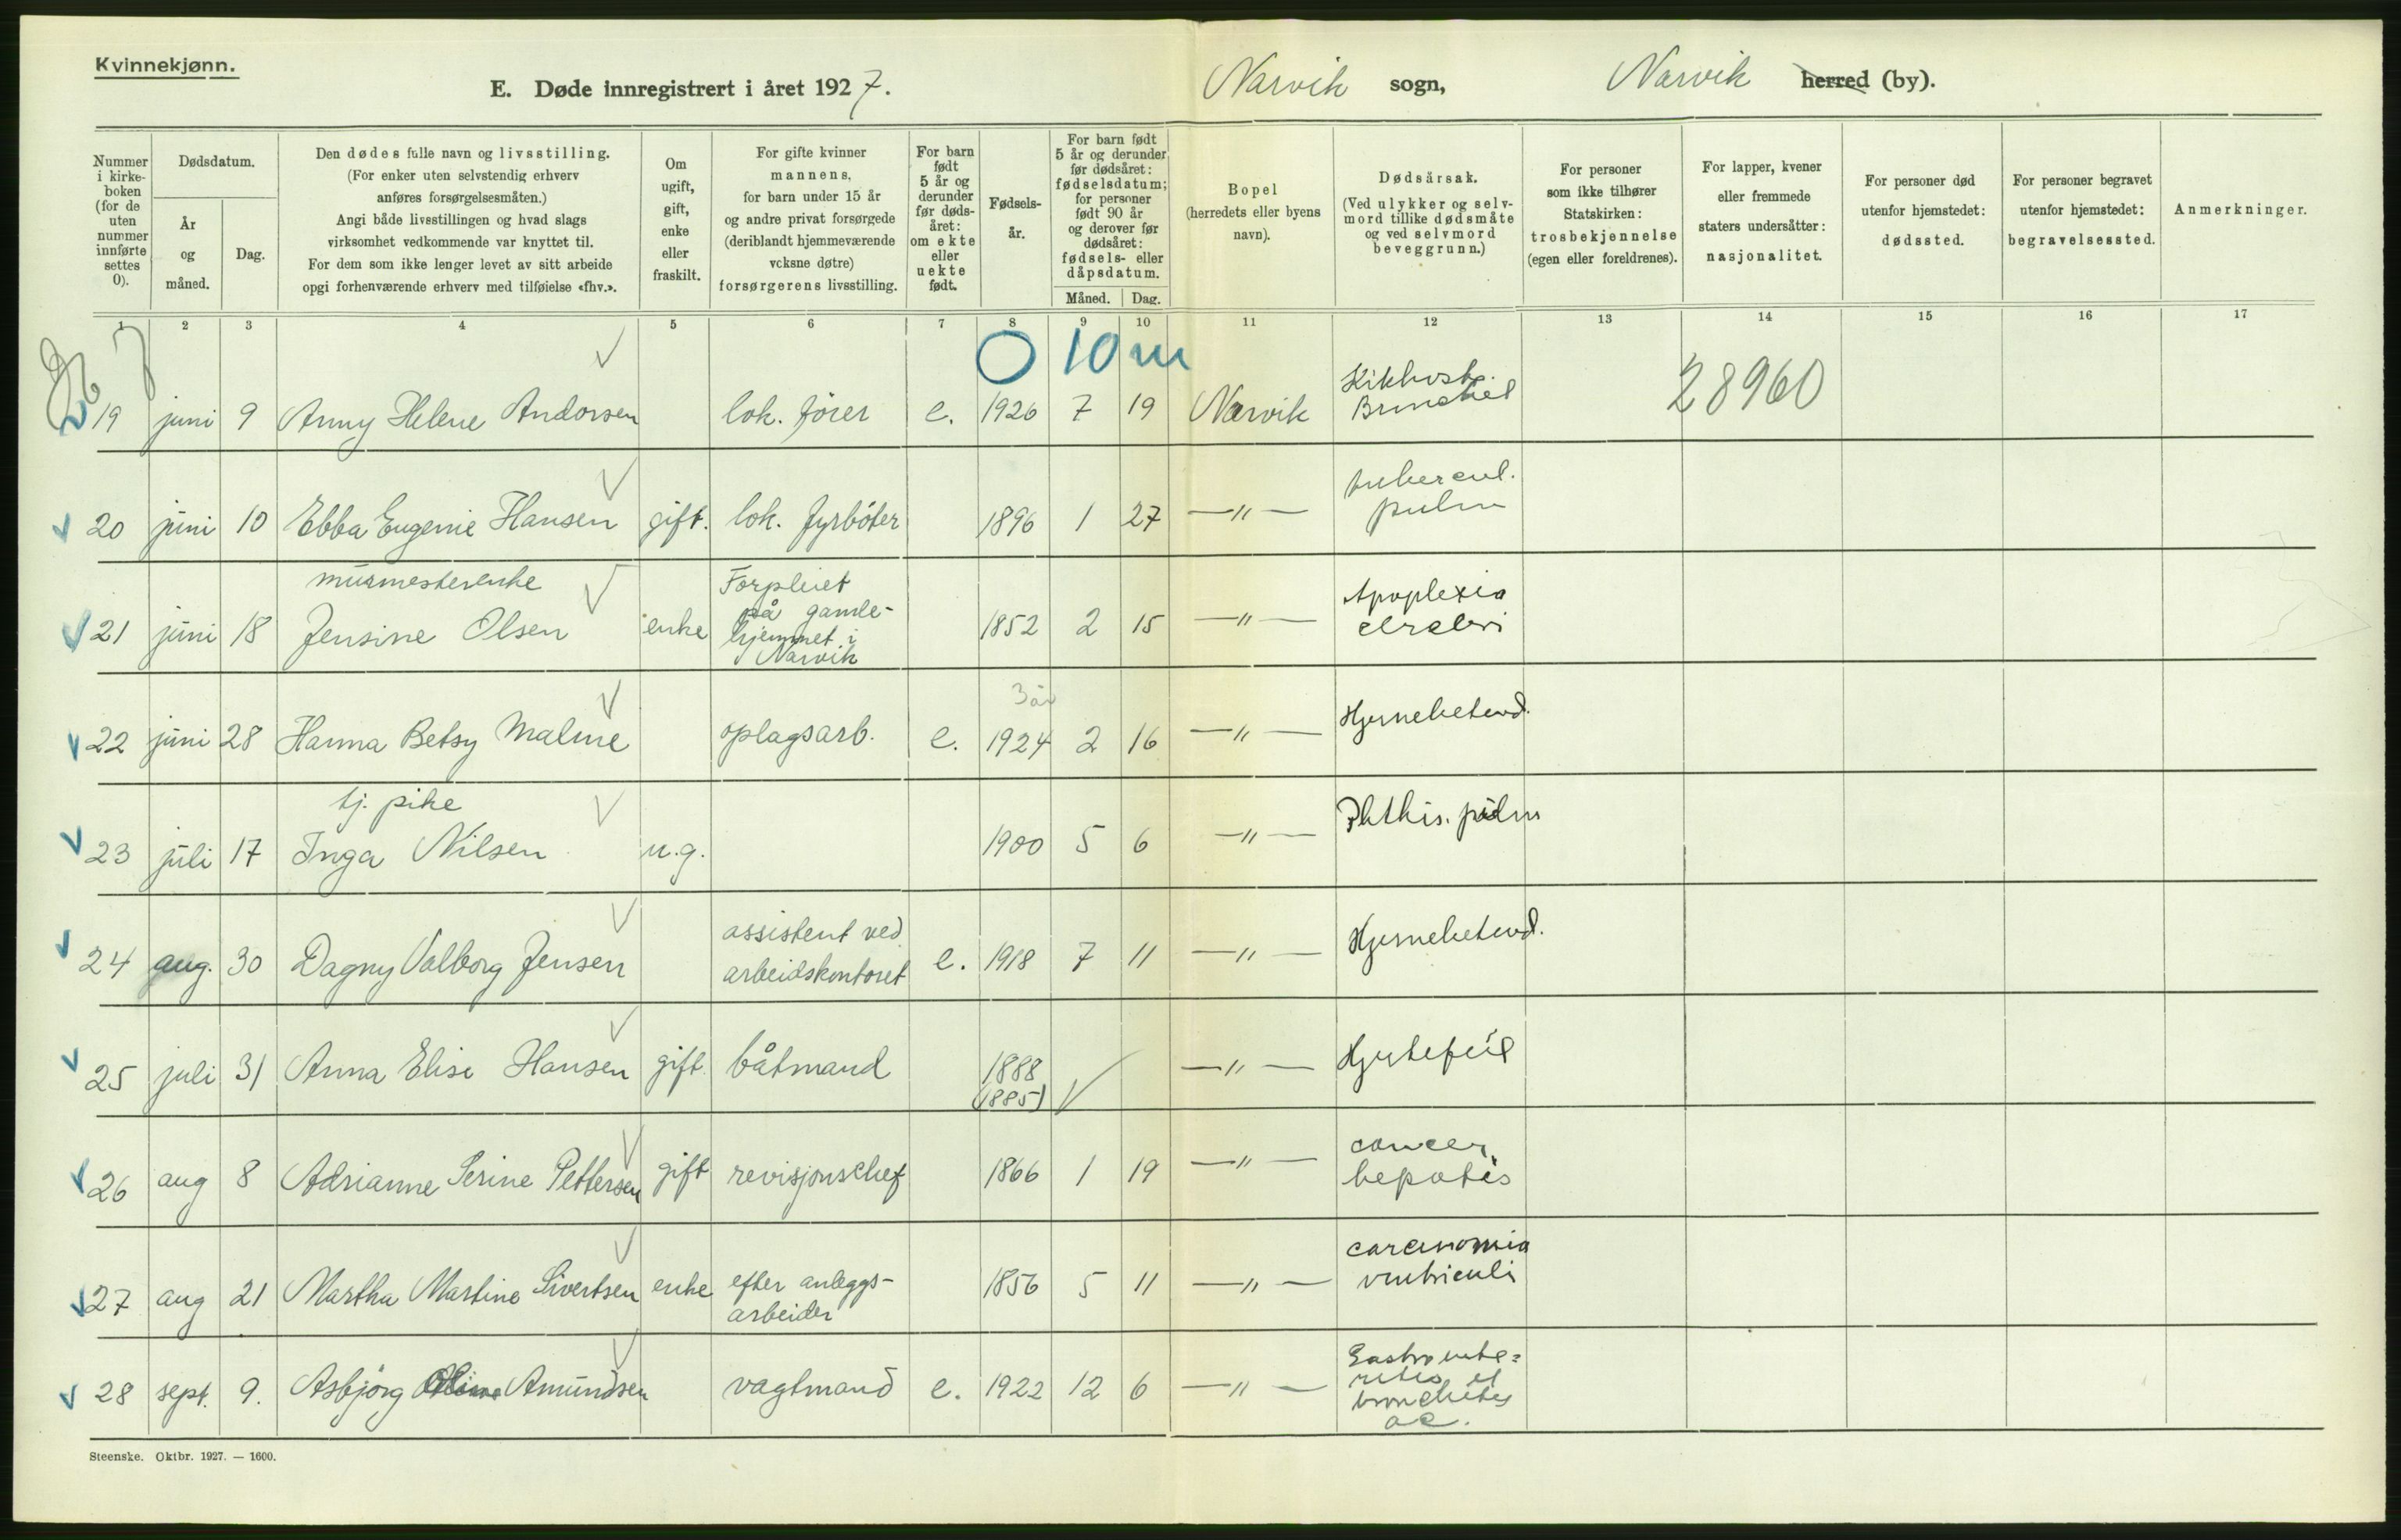 Kvinnekjønn.
E. Døde innregistrert i året 1927. Narvik sogn, Narvik herred (by).
Nummer i kirke-boken (for de uten nummer innførte settes 0).
Dødsdatum.
År og måned.
Dag.
Den dødes fulle navn og livsstilling.
(For enker uten selvstendig erhverv
anføres forsørgelsesmåten.)
Angi både livsstillingen og hvad slags
virksomhet vedkommende var knyttet til.
For dem som ikke lenger levet av sitt arbeide
opgi forhenværende erhverv med tilføielse «fhv.».
Om ugift, gift, enke eller fraskilt.
For gifte kvinner
mannens,
for barn under 15 år
og andre privat forsørgede
(deriblandt hjemmeværende
voksne døtre)
forsørgerens livsstilling.
For barn født 5 år og derunder før døds-året: om ekte eller uekte født.
Fødsels-år.
For barn født
5 år og derunder
før dødsåret:
fødselsdatum;
for personer
født 90 år
og derover før
dødsåret:
fødsels- eller
dåpsdatum.
Måned. Dag.
Bopel
(herredets eller byens
navn).
Dødsårsak.
(Ved ulykker og selv-
mord tillike dødsmåte
og ved selvmord
beveggrunn.)
For personer
som ikke tilhører
Statskirken:
trosbekjennelse
(egen eller foreldrenes).
For lapper, kvener
eller fremmede
staters undersåtter:
nasjonalitet.
For personer død
utenfor hjemstedet:
dødssted.
For personer begravet
utenfor hjemstedet:
begravelsessted.
Anmerkninger.
1 2 3 4 5 6 7 8 9 10 11 12 13 14 15 16 17
0 10 m
28960
19 juni 9 Anny Helene Andorsen lok. fører e. 1926 7 19 Narvik Kikhoste.
20 juni 10 Ebba Eugenie Hansen gift. lok. fyrbøter 1896 1 27 —"— tubercul.
pulm
murmesterenke
21 juni 18 Jensine Olsen enke Forpleiet
på gamle-
hjemmet i
Narvik 1852 2 15 —"— Apoplexia
cerebri
3 år
22 juni 28 Hanna Betsy Malme oplagsarb. e. 1924 2 16 —"— Hjernebetend.
tj. pike
23 juli 17 Inga Nilsen u.g. 1900 5 6 —"— Phthis. pulm
24 aug. 30 Dagny Valborg Jensen assistent ved
arbeidskontoret e. 1918 7 11 —"— Hjernebetend.
25 juli 31 Anna Elise Hansen gift. båtmand 1888
(1885) —"— Hjertefeil
26 aug 8 Adrianne Serine Pettersen gift revisjonschef 1866 1 19 —"— cancer
hepatis
27 aug 21 Martha Martine Sivertsen enke efter anleggs-
arbeider 1856 5 11 —"— carcinomia
ventriculi
28 sept. 9. Asbjörg Amundsen vagtmand e. 1922 12 6 —"— Gastroente-
ritis et
bronchites
ac.
Steenske. Oktbr. 1927. — 1600.